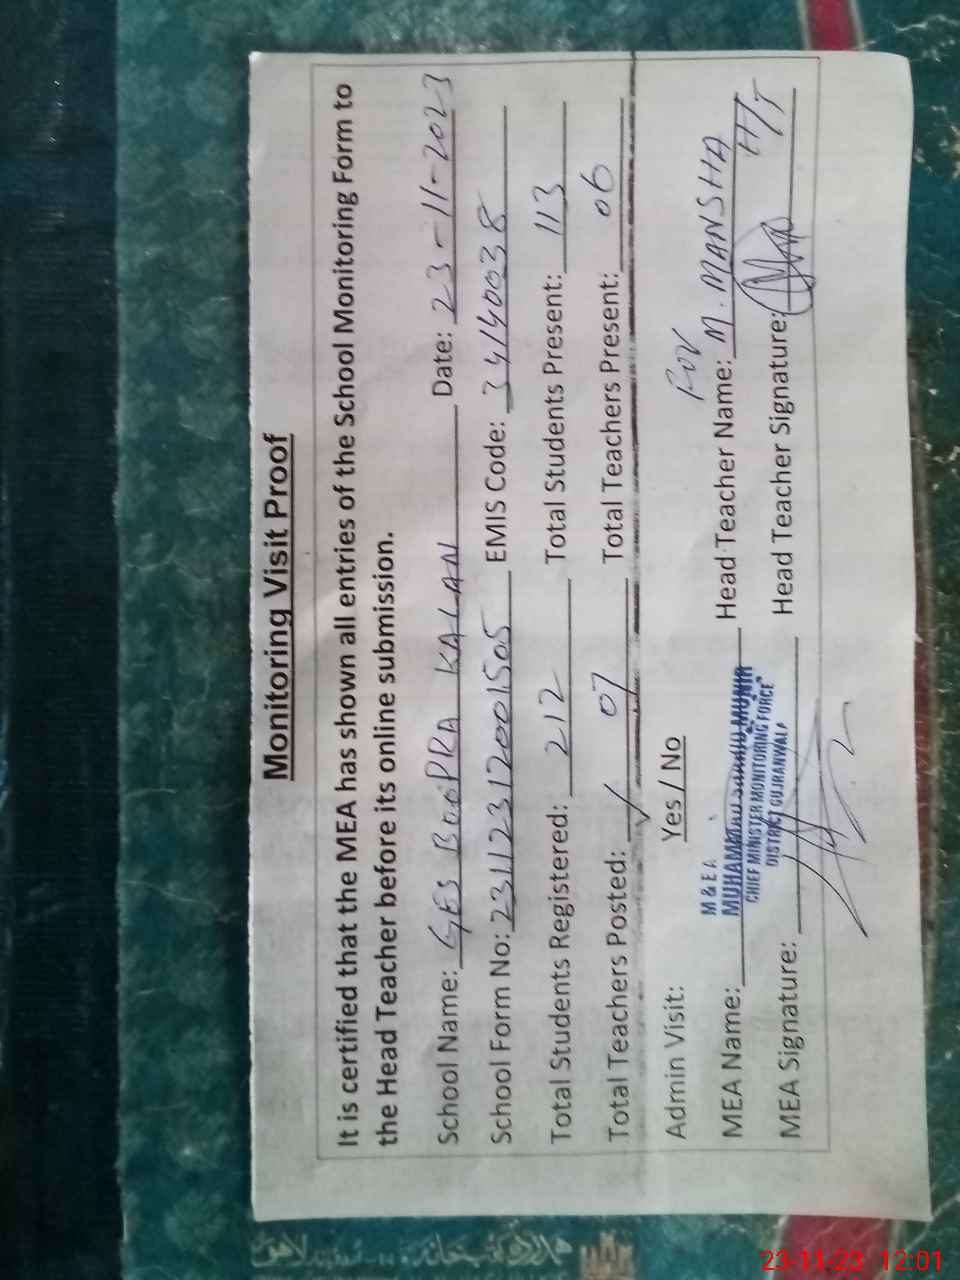 Monitoring Visit Proof
It is certified that the MEA has shown all entries of the School Monitoring Form to
the Head Teacher before its online submission.
School Name: GES BOOPRA KALAN Date: 23-11-2023
School Form No: 231123112001505 EMIS Code: 34140038
Total Students Registered: 212 Total Students Present: 113
Total Teachers Posted: 07 Total Teachers Present: 06
Admin Visit: Yes / No
For
M & E A
MEA Name: MUHAMMAD MUNIR Head Teacher Name: M. MANSHA
CHIEF MINISTER MONITORING FORCE
H/T
DISTRICT GUJRANWALA
MEA Signature: Head Teacher Signature:
23-11-23 12:01